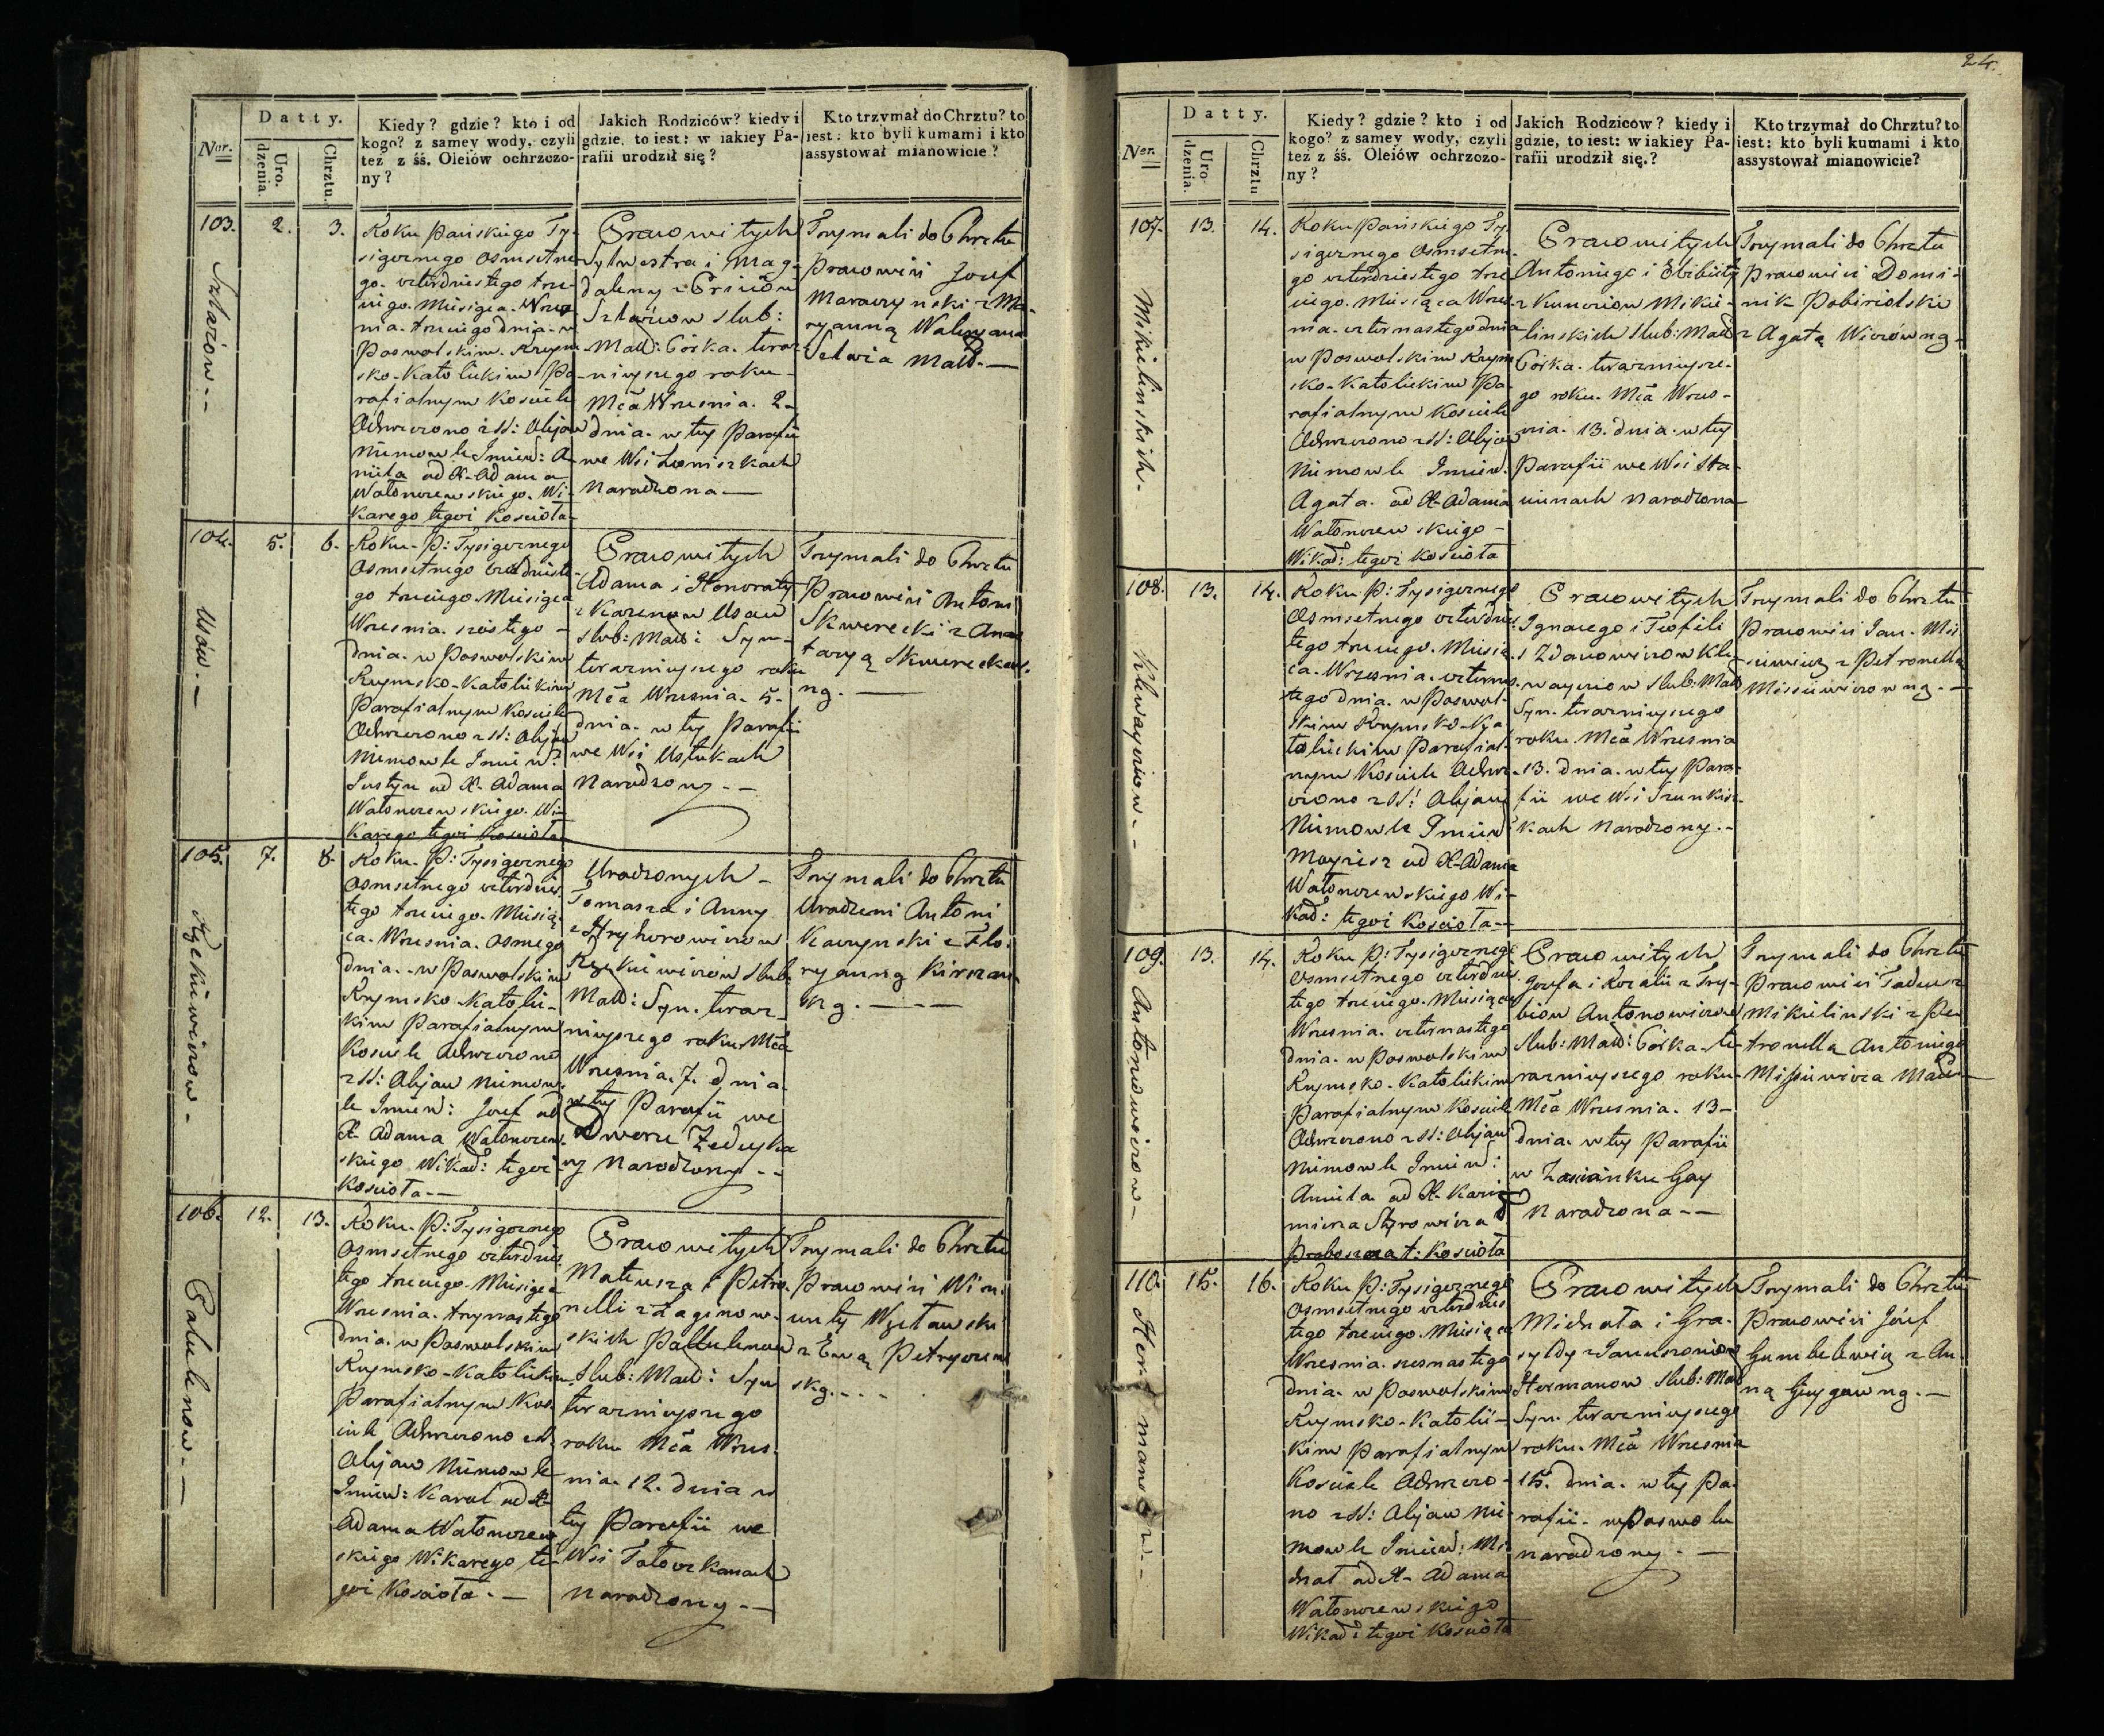 24.
Ner.
Datty.
Uro-
dzenia.
Chrztu.
Kiedy? gdzie? kto i od
kogo? z samey wody, czyli
też z śś. Oleiów ochrzczo-
ny?
Jakich Rodziców? kiedy i
gdzie, to iest: w iakiey Pa-
rafii urodził się?
Kto trzymał do Chrztu? to
iest: kto byli kumami i kto
assystował mianowicie?
103.
2.
3.
Roku Pańskiego Ty-
siącznego Osmsetne-
go czterdziestego trze-
ciego Miesiąca Wrześ-
nia trzeciego dnia w
Poswolskim Rzym-
sko-Katolickim Pa-
rafialnym Kościele
Ochrzczono z SS: Olejow
Niemowle Imien: A-
niela od X. Adama
Watonczewskiego Wi-
karego tegoż Kościoła
Pracowitych
Sylwestra i Mag-
daleny z
Slub:
Małż: Córka teraz-
nieyszego roku
Mca Wrzesnia 2
dnia w tey Parafii
we Wsi Loniszkach
Narodzona
Trzymali do Chrztu
Pracowici Jozef
z Ma-
ryanną Waleryana
Małż.
104.
5.
6.
Usów.
Roku P: Tysiącznego
Osmsetnego czterdzieste-
go trzeciego Miesiąca
Wrzesnia szostego
dnia w Poswolskim
Rzymsko-Katolickim
Parafialnym Kościele
Ochrzczono z SS: Olejow
Niemowle Imien:
Justyn od X. Adama
Watonczewskiego Wi-
karego tegoż Kościoła
Pracowitych
Adama i Honoraty
z Usow
Slub: Małż: Syn
teraznieyszego roku
Mca Wrzesnia 5
dnia w tey Parafii
we Wsi Ustukach
Narodzony
Trzymali do Chrztu
Pracowici Antoni
Skwerecki z Anas-
tazyą
105.
7.
8.
Roku P: Tysiącznego
Osmsetnego czterdzies-
tego trzeciego Miesią-
ca Wrzesnia Osmego
dnia w Poswolskim
Rzymsko Katolic-
kim Parafialnym
Kościele Ochrzczono
z SS: Olejow Niemow-
le Imien: Jozef od
X. Adama Watonczew-
skiego Wikar: tegoż
Kościoła
Urodzonych
Tomasza i Anny
z Hryhorowiczow
Slub:
Małż: Syn teraz-
nieyszego roku Mca
Wrzesnia 7. dnia
w tey Parafii we
Dworze
Narodzony
Trzymali do Chrztu
Urodzeni Antoni
z Flo-
ryanną
106.
12.
13.
Roku P: Tysiącznego
Osmsetnego czterdzies-
tego trzeciego Miesiąca
Wrzesnia trzynastego
dnia w Poswolskim
Rzymsko-Katolickim
Parafialnym Koś-
ciele Ochrzczono z SS:
Olejow Niemowle
Imien: Karol od X.
Adama Watonczew-
skiego Wikarego te-
goż Kościoła
Pracowitych
Mateusza i Petro-
nelli z Łaginow-
skich
Slub: Małż: Syn
teraznieyszego
roku Mca Wrześ-
nia 12. dnia w
tey Parafii we
Wsi
Narodzony
Trzymali do Chrztu
Pracowici Win-
centy
z Ewą
Ner.
Datty.
Uro-
dzenia.
Chrztu
Kiedy? gdzie? kto i od
kogo? z samey wody, czyli
też z śś. Oleiów ochrzczo-
ny?
Jakich Rodziców? kiedy i
gdzie, to iest: w iakiey Pa-
rafii urodził się.?
Kto trzymał do Chrztu? to
iest: kto byli kumami i kto
assystował mianowicie?
107.
13.
14.
Mikielinskich
Roku Pańskiego Ty-
siącznego Osmsetne-
go czterdziestego trze-
ciego Miesiąca Wrześ-
nia czternastego dnia
w Poswolskim Rzym-
sko-Katolickim Pa-
rafialnym Kościele
Ochrzczono z SS: Olejow
Niemowle Imien:
Agata od X. Adama
Watonczewskiego
Wikar: tegoż Kościoła
Pracowitych
Antoniego i Elżbiety
z Mikie-
linskich Slub: Małż
Córka terazniejsze-
go roku Mca Wrześ-
nia 13. dnia w tey
Parafii we Wsi Sta-
Narodzona
Trzymali do Chrztu
Pracowici Domi-
nik
z Agatą
108.
13.
14.
Roku P: Tysiącznego
Osmsetnego czterdzies-
tego trzeciego Miesią-
ca Wrzesnia czternas-
tego dnia w Poswol-
skim Rzymsko-Ka-
tolickim Parafial-
nym Kościele Ochrz-
czono z SS: Olejow
Niemowle Imien
Moyżesz od X. Adama
Watonczewskiego Wi-
kar: tegoż Kościoła
Pracowitych
Ignacego i Teofili
z Zdanowiczow
Slub: Małż
Syn terazniejszego
roku Mca Wrzesnia
13. dnia w tey Para-
fii we Wsi
Narodzony
Trzymali do Chrztu
Pracowici Jan
z Petronellą
109.
13.
14.
Antonowiczow
Roku P: Tysiącznego
Osmsetnego czterdzies-
tego trzeciego Miesiąca
Wrzesnia czternastego
dnia w Poswolskim
Rzymsko-Katolickim
Parafialnym Kościele
Ochrzczono z SS: Olejow
Niemowle Imien:
Aniela od X. Kazi-
mierza
Proboszcza t: Kościoła
Pracowitych
Jozefa i Rozalii z
Antonowiczow
Slub: Małż: Córka te-
raznieyszego roku
Mca Wrzesnia 13
dnia w tey Parafii
w Zaścianku Gay
Narodzona
Trzymali do Chrztu
Pracowici Tadeusz
Mikielinski z Pe-
tronellą Antoniego
Małż
110.
15.
16.
Hermanow
Roku P: Tysiącznego
Osmsetnego czterdzies-
tego trzeciego Miesiąca
Wrzesnia szesnastego
dnia w Poswolskim
Rzymsko-Katolic-
kim Parafialnym
Kościele Ochrzczo-
no z SS: Olejow Nie-
mowle Imien: Mi-
chał od X. Adama
Watonczewskiego
Wikar: tegoż Kościoła
Pracowitych
Michała i Gra-
syldy z
Hermanow Slub: Małż
Syn terazniejszego
roku Mca Wrzesnia
15. dnia w tey Pa-
rafii w Poswolu
Narodzony
Trzymali do Chrztu
Pracowici Józef
z An-
ną